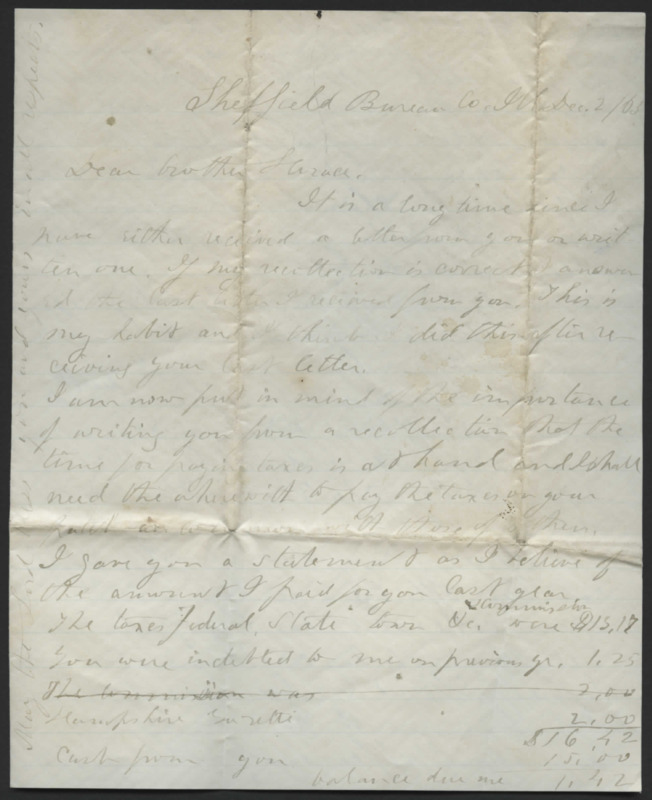 Sheffield Bureau Co. Ill. Dec. 2/65
Dear brother Horace.
It is a long time since I
have either received a letter from you or writ
ten one. If my recollection is correct I answer
ed the last letter I received from you. This is
my habit and I think I did this after re
ceiving your last letter.
I am now put in mind of the importance
of writing you from a recollection that the
time for paying taxes is at hand and I shall
need the wherewith to pay the taxes on your
I gave you a statement as I believe of
the amount I paid for you last year
& commission
The taxes Federal, State town &c. were $13,17
You were indebted to me on previous yr. 1,25
The commission was 2,00
Hampshire Gazette 2,00
$16,42
Cash from you 15,00
balance due me 1,42
May the Lord and yours in all respects.